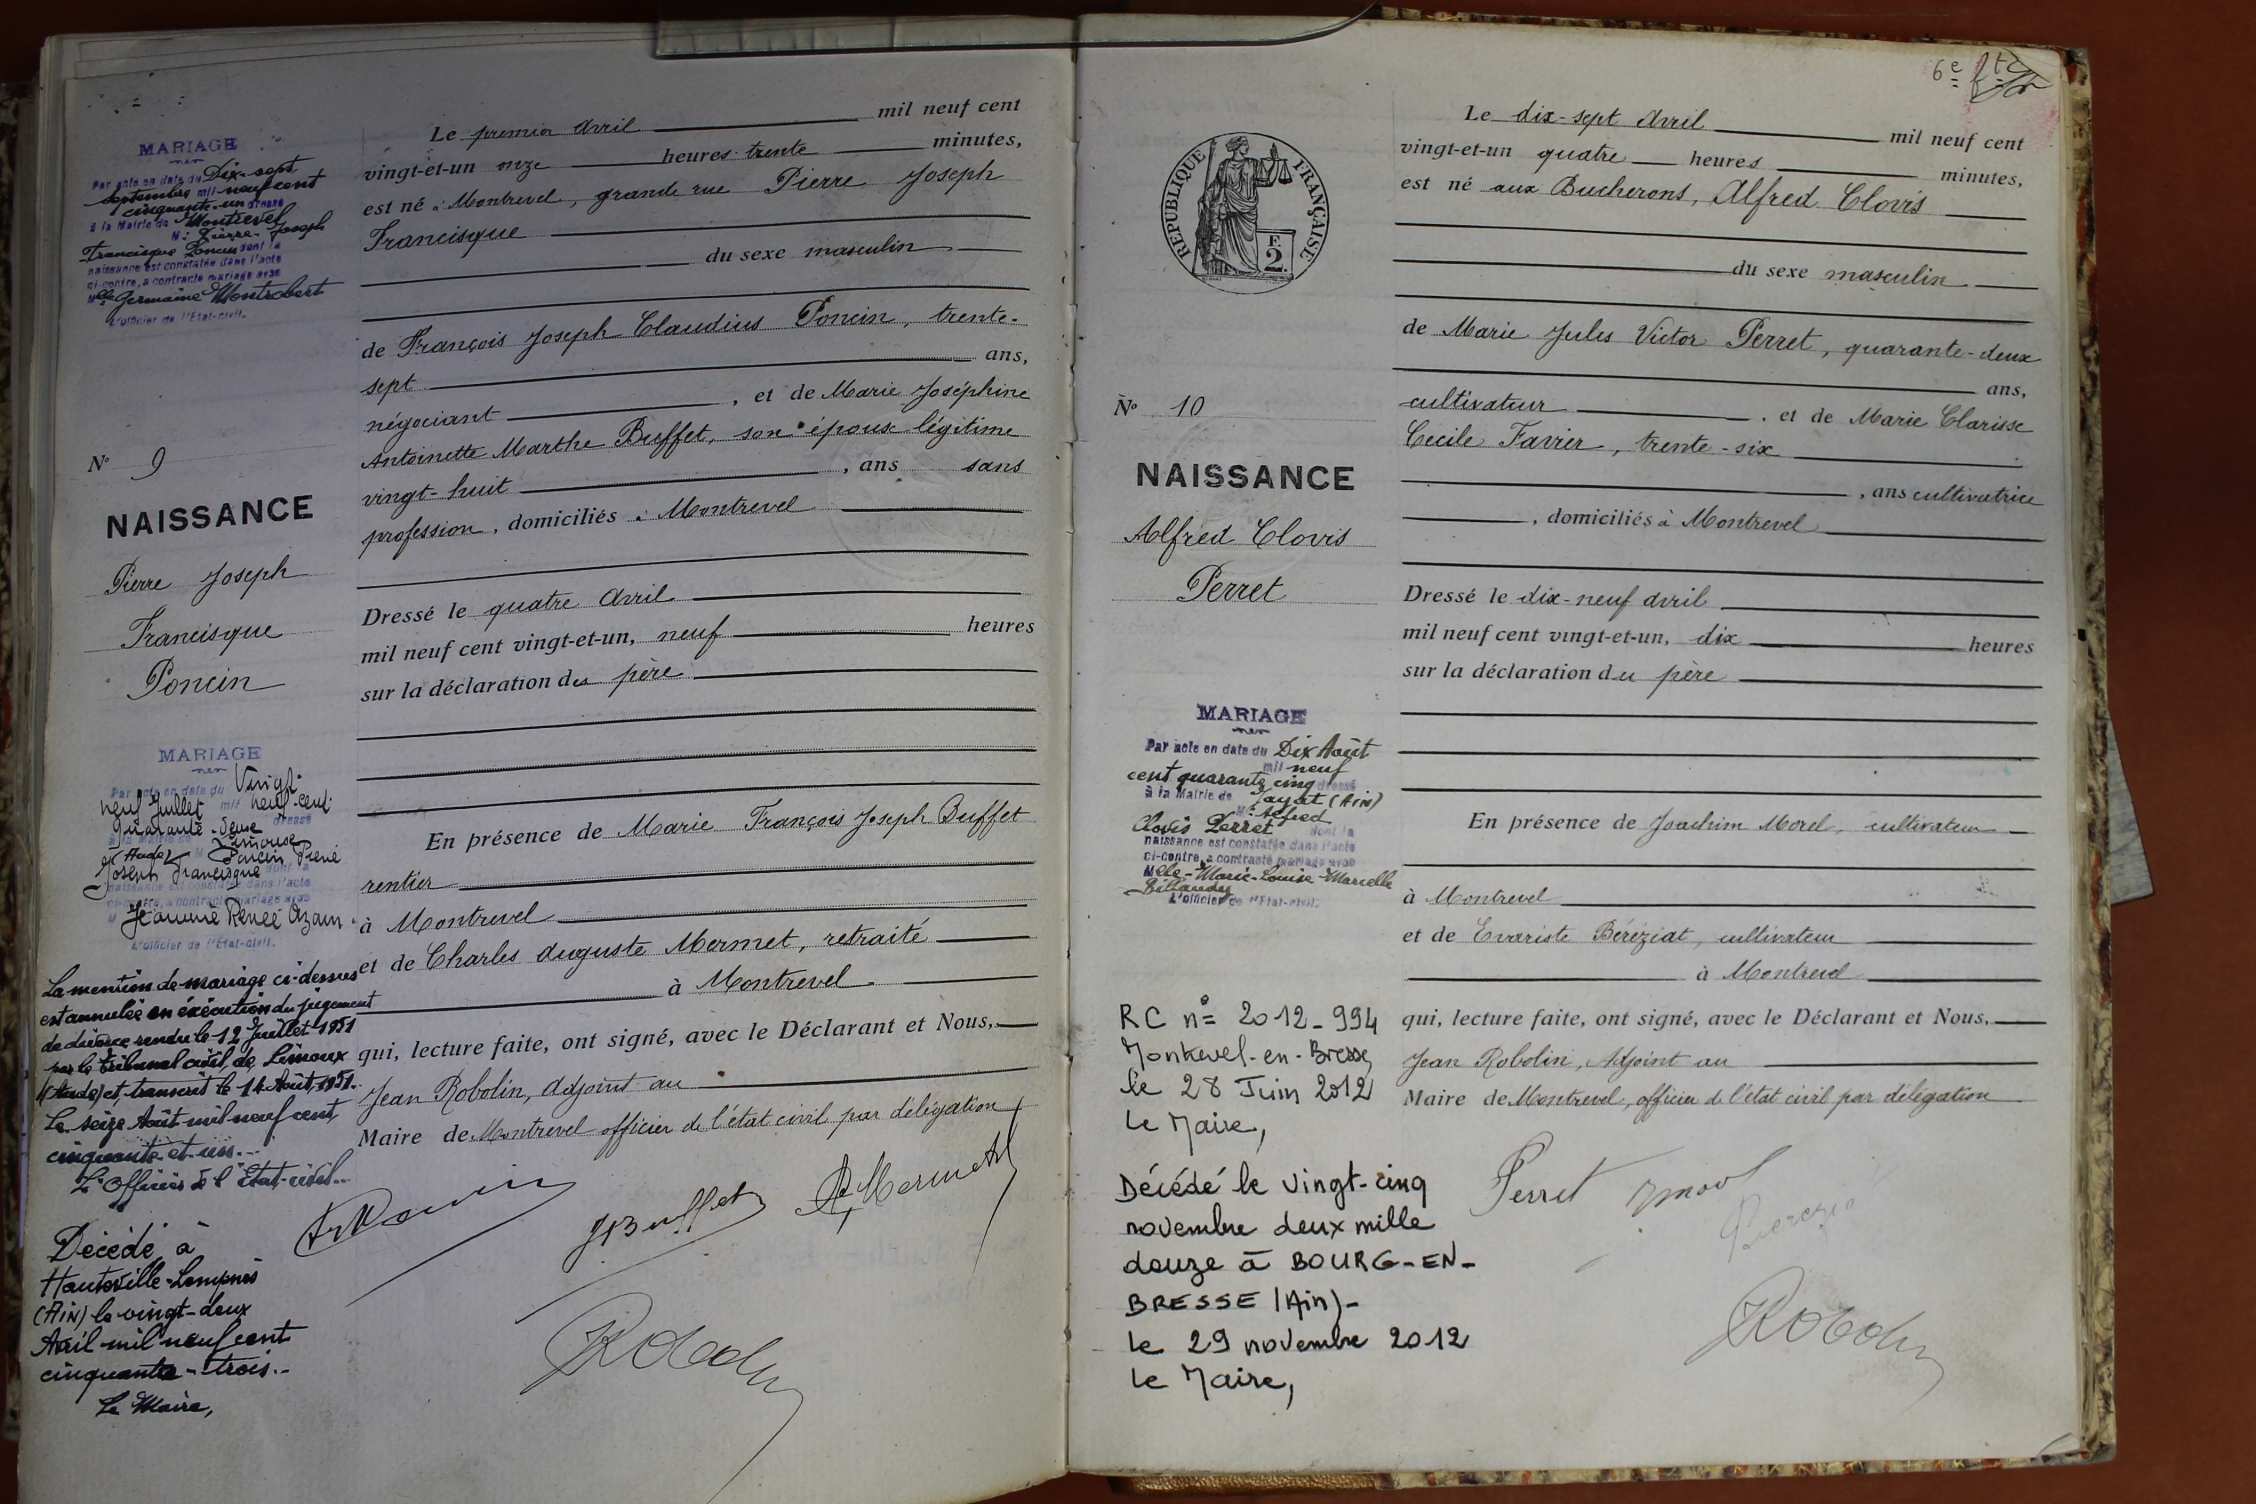 MARIAGE
Par acte en date du Dix-sept
septembre mil neuf cent
cinquante-un dressé
à la Mairie de Montrevel
M. Pierre-Joseph
Francisque Poncin dont la
naissance est constatée dans l'acte
ci-contre, a contracté mariage avec
Mlle Germaine Montrobert
L'officier de l'Etat-civil.
N° 9
NAISSANCE
Pierre Joseph
Francisque
Poncin
MARIAGE
Par acte en date du Vingt-
neuf Juillet mil neuf-cent
quarante-deux dressé
à la Mairie de Limoux
(Aude) M Poncin Pierre
Joseph Francisque dont la
naissance est constatée dans l'acte
ci-contre, a contracté mariage avec
M Jeanne Renée Azam
L'officier de l'Etat-civil.
La mention de mariage ci-dessus
est annulée en exécution du jugement
de divorce rendu le 12 Juillet 1951
par le tribunal civil de Limoux
(Aude) et transcrit le 14 Août 1951.
Le seize Août mil neuf cent
cinquante-et-un.
L'Officier de l'Etat-civil.
Décédé à
Hauteville-Lompnès
(AIN) le vingt-deux
Avril mil neuf cent
cinquante-trois.
Le Maire,
Le premier Avril mil neuf cent
vingt-et-un onze heures trente minutes,
est né à Montrevel, grande rue Pierre Joseph
Francisque
du sexe masculin
de François Joseph Claudius Poncin, trente-
sept ans,
négociant, et de Marie Joséphine
Antoinette Marthe Buffet, son épouse légitime
vingt-huit, ans sans
profession, domiciliés à Montrevel
Dressé le quatre Avril
mil neuf cent vingt-et-un, neuf heures
sur la déclaration du père
En présence de Marie François Joseph Buffet
rentier
à Montrevel
et de Charles Auguste Mermet, retraité
à Montrevel
qui, lecture faite, ont signé, avec le Déclarant et Nous,
Jean Robolin, Adjoint au
Maire de Montrevel officier de l'état civil par délégation
Poncin
JBuffet
Mermet
Robolin
6e
RÉPUBLIQUE FRANÇAISE
2F.
N° 10
NAISSANCE
Alfred Clovis
Perret
MARIAGE
Par acte en date du Dix Août
mil neuf
cent quarante cinq dressé
à la Mairie de Jayat (Ain)
M. Alfred
Clovis Perret dont la
naissance est constatée dans l'acte
ci-contre, a contracté mariage avec
Mlle-Marie-Louise-Marcelle
Billaudey
L'officier de l'Etat-civil.
RC n° 2012-994
Montrevel-en-Bresse
le 28 Juin 2012
Le Maire,
Décédé le vingt-cinq
novembre deux mille
douze à BOURG-EN-
BRESSE (Ain)-
Le 29 novembre 2012
Le Maire,
Le dix-sept Avril mil neuf cent
vingt-et-un quatre heures minutes,
est né aux Bucherons, Alfred Clovis
du sexe masculin
de Marie Jules Victor Perret, quarante-deux
ans,
cultivateur, et de Marie Clarisse
Cecile Favier, trente-six
, ans cultivatrice
, domiciliés à Montrevel
Dressé le dix-neuf avril
mil neuf cent vingt-et-un, dix heures
sur la déclaration du père
En présence de Joachim Morel, cultivateur
à Montrevel
et de Evariste Béréziat, cultivateur
à Montrevel
qui, lecture faite, ont signé, avec le Déclarant et Nous,
Jean Robolin, Adjoint au
Maire de Montrevel, officier de l'état civil par délégation
Perret
Bereziat
Robolin